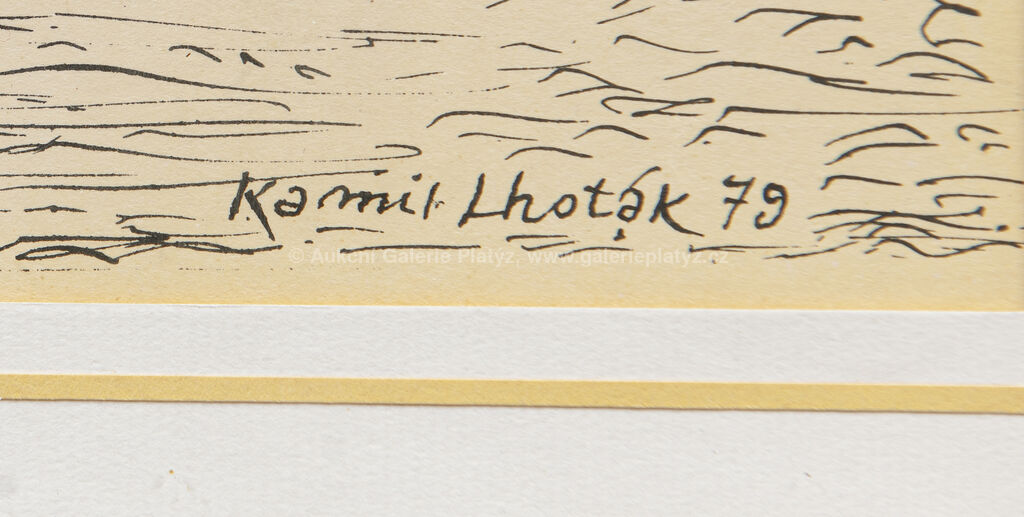 Kamil Lhoták 79
© Aukční Galerie Platýz, www.galerieplatyz.cz